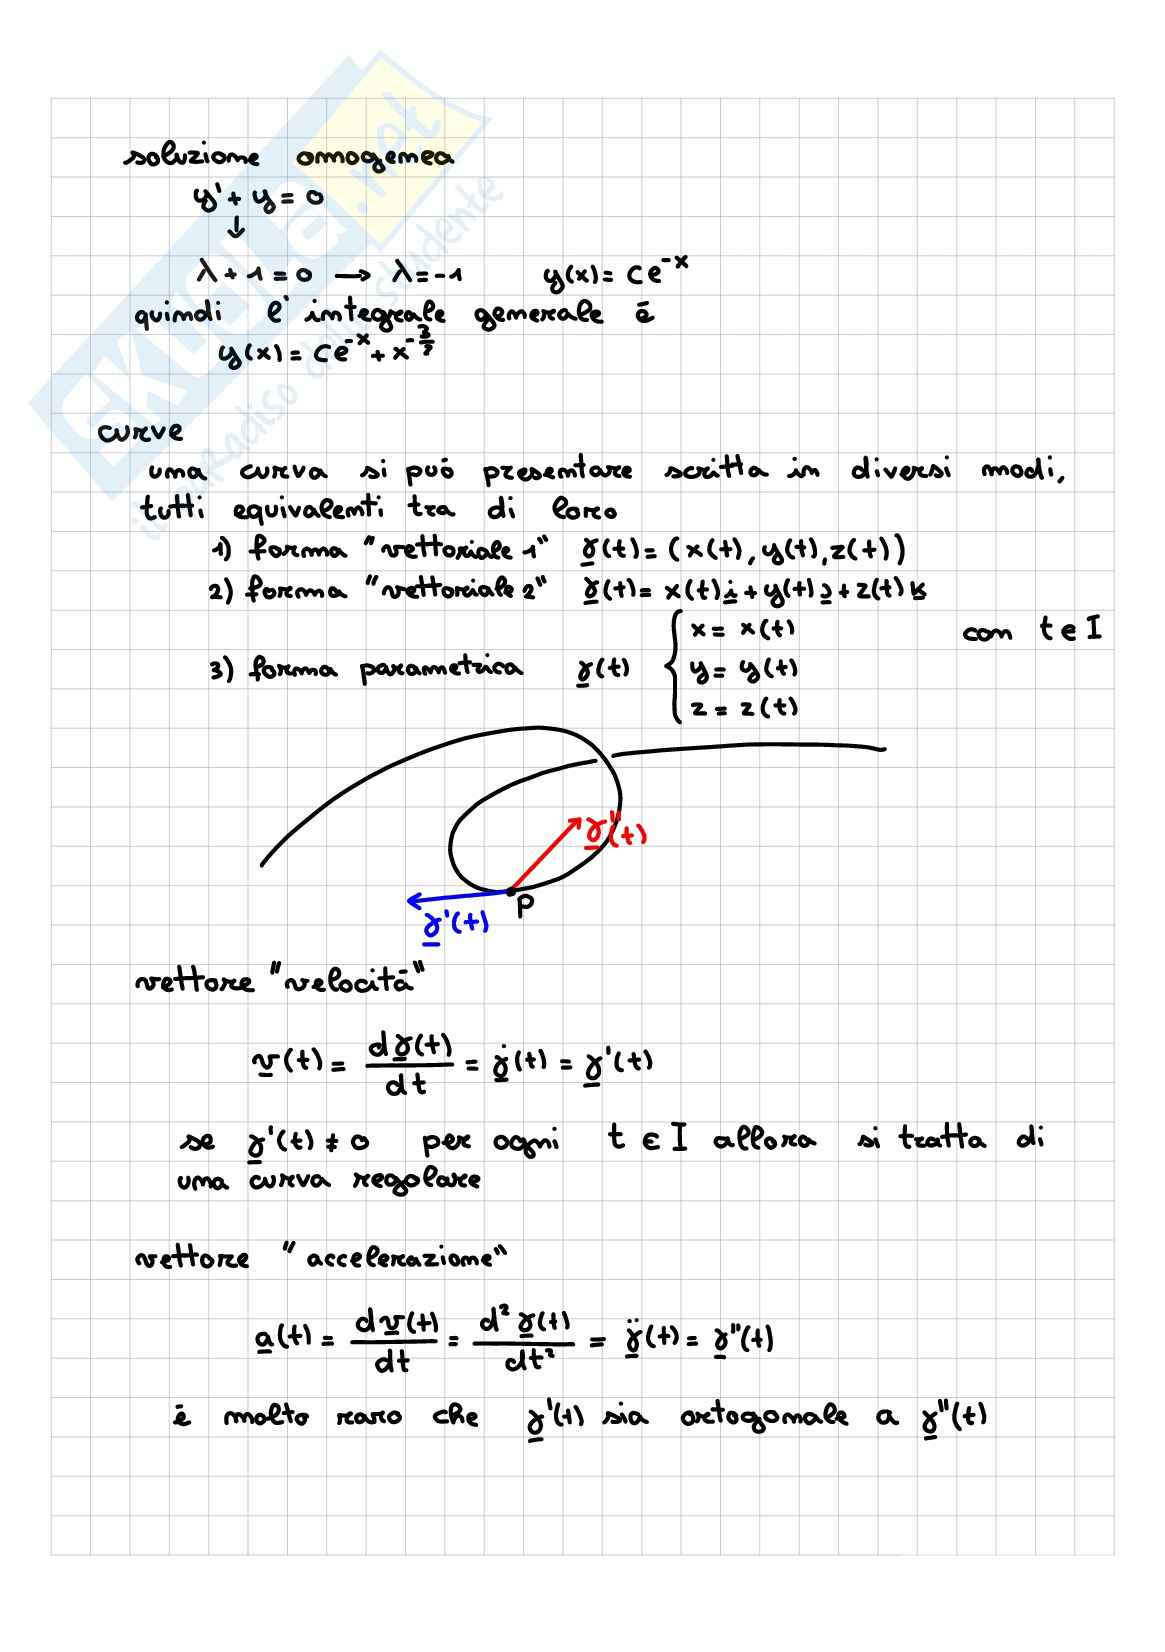 soluzione omogenea
y' + y = 0
↓
λ + 1 = 0 → λ = -1 y(x) = c e^{-x}
quindi l'integrale generale è
y(x) = c e^{-x} + x - \frac{3}{2}
curve
una curva si può presentare scritta in diversi modi,
tutti equivalenti tra di loro
1) forma "vettoriale 1" γ(t) = (x(t), y(t), z(t))
2) forma "vettoriale 2" γ(t) = x(t) i + y(t) j + z(t) k
3) forma parametrica γ(t) { x = x(t) con t ∈ I
y = y(t)
z = z(t)
γ''(t)
P
γ'(t)
vettore "velocità"
v(t) = \frac{dγ(t)}{dt} = \dot{γ}(t) = γ'(t)
se γ'(t) ≠ 0 per ogni t ∈ I allora si tratta di
una curva regolare
vettore "accelerazione"
a(t) = \frac{dv(t)}{dt} = \frac{d² γ(t)}{dt²} = \ddot{γ}(t) = γ''(t)
è molto raro che γ'(t) sia ortogonale a γ''(t)
SKUOLA.net
il paradiso dello studente